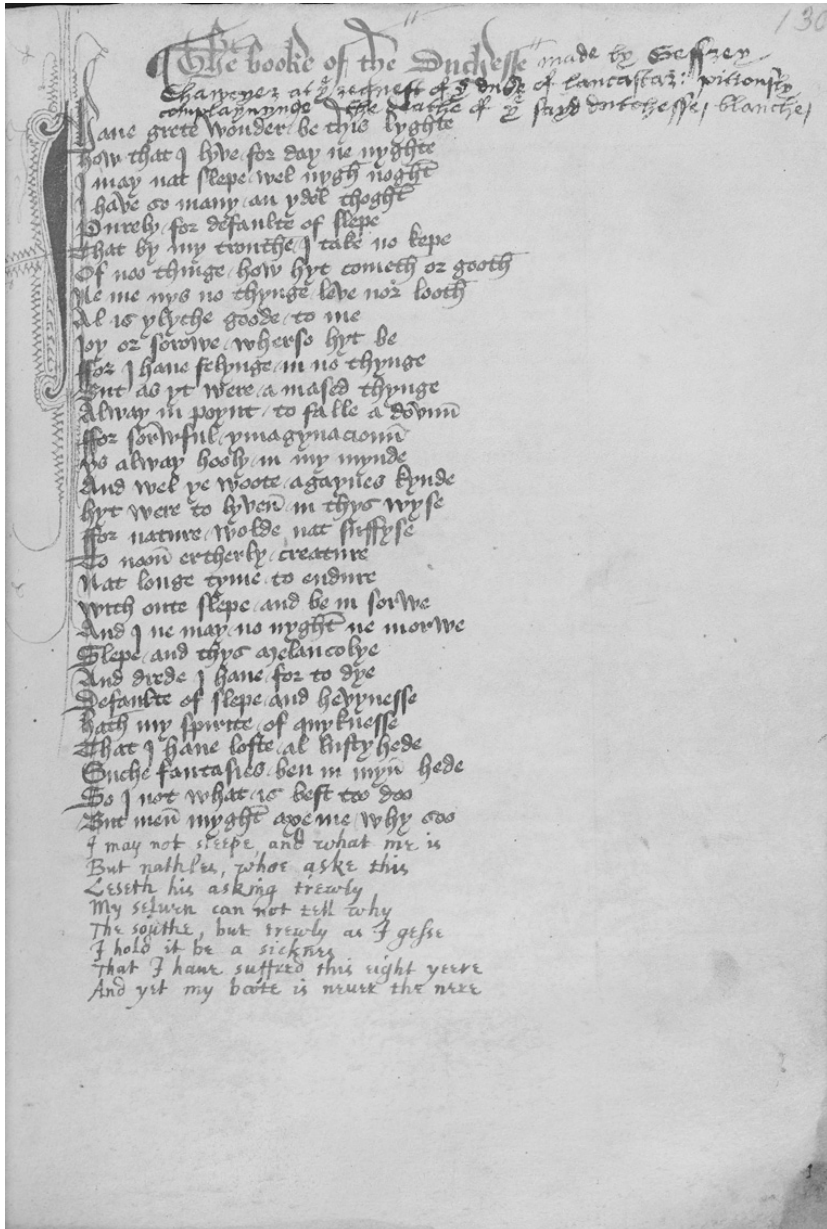 130
The booke of the Duchesse made by Geffrey
Chawcyer at yͤ request of yͤ duke of lancastar: pittiously
complaynynge the deathe of yͤ sayd dutchesse, blanche,
I Haue grete wonder be this lyghte
How that I lyve for day ne nyghte
I may nat slepe wel nygh noght
I have so many an ydel thoght
Purely for defaulte of slepe
That by my trouthe I take no kepe
Of noo thinge how hyt cometh or gooth
Ne me nys no thynge leve nor looth
Al is ylyche goode to me
Joy or sorowe wherso hyt be
ffor I haue felynge in no thynge
But as yt were a mased thynge
Alway in poynt to falle a dovun
ffor sorwful ymagynacioun
Ys alway hooly in my mynde
And wel ye woote agaynes kynde
Hyt were to lyven in thys wyse
ffor nature wolde nat suffyse
To noon ertherly creature
Nat longe tyme to endure
With oute slepe and be in sorwe
And I ne may no nyght ne morwe
Slepe and thys melancolye
And drede I haue for to dye
Defaulte of slepe and hevynesse
Hath my spirite of quyknesse
That I haue loste al lustyhede
Suche fantasies ben in myn hede
So I not what is best too doo
But men myght axe me why soo
I may not sleepe, and what me is
But nathles, whoe aske this
Leseth his asking trewly
My selven can not tell why
The southe, but trewly as I gesse
I hold it be a sicknes
That I haue suffred this eight yeere
And yet my boote is neuer the nere